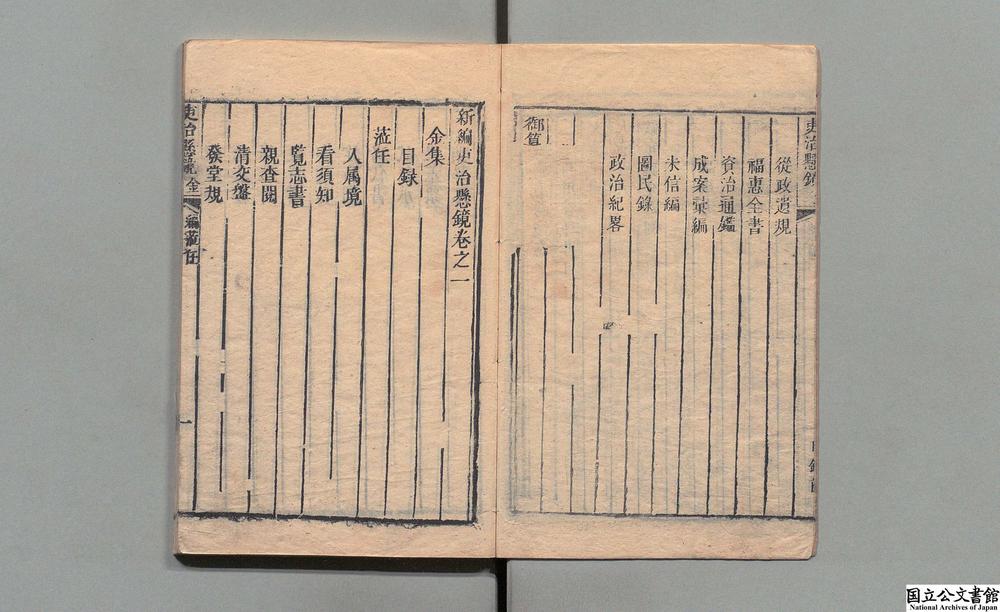 吏治懸鏡
從政遺規
福惠全書
資治通鑑
成案彙編
未信編
圖民錄
政治紀畧
新編吏治懸鏡卷之一
金集
目録
蒞任
入属境
看須知
覽志書
親查閱
清交盤
發堂規
吏治懸鏡 金
一
国立公文書館
National Archives of Japan